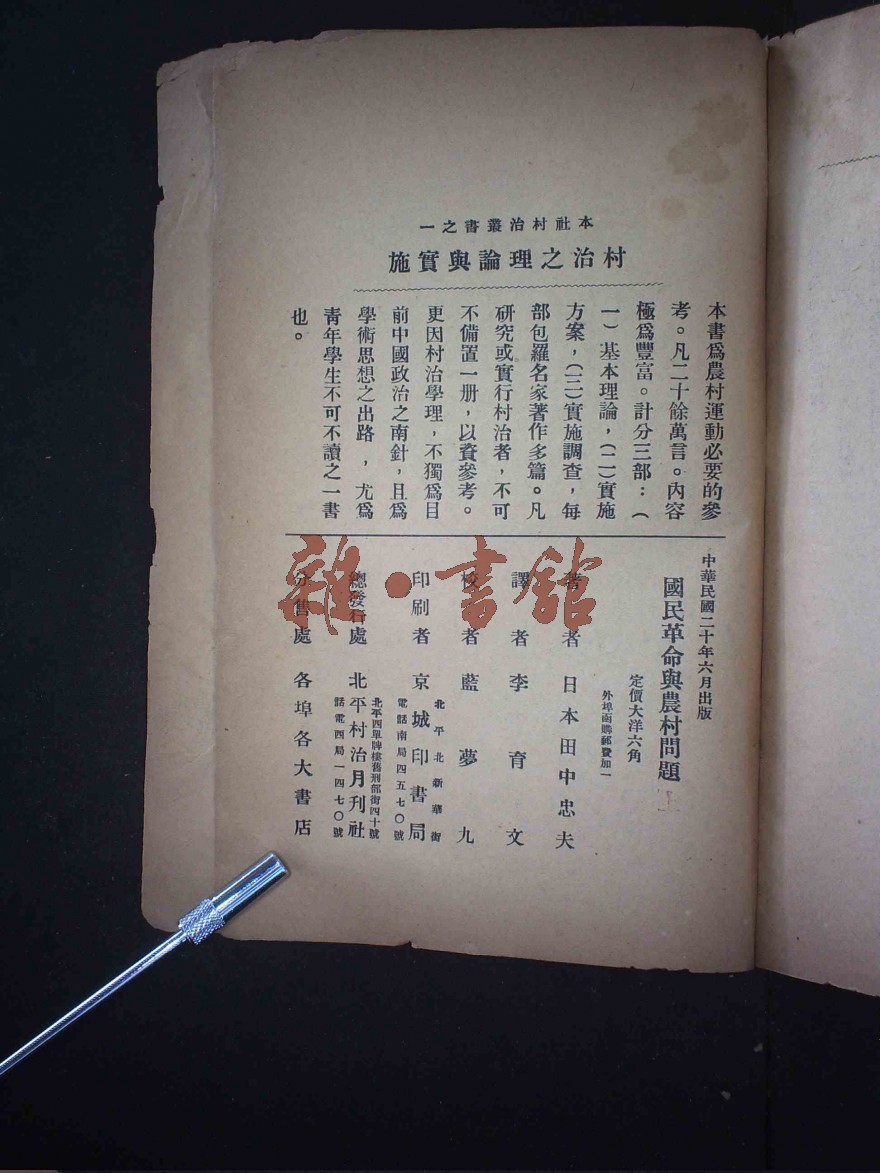 本社村治叢書之一
村治之理論與實施
本書爲農村運動必要的參
考。凡二十餘萬言。內容
極爲豐富。計分三部：（
一）基本理論，（二）實施
方案，（三）實施調查，每
部包羅名家著作多篇。凡
研究或實行村治者，不可
不備置一册，以資參考。
更因村治學理，不獨爲目
前中國政治之南針，且爲
學術思想之出路，尤爲
靑年學生不可不讀之一書
也。
中華民國二十年六月出版
國民革命與農村問題
定價大洋六角
外埠函購郵費加一
著者 日本田中忠夫
譯者 李育文
校者 藍夢九
印刷者 京城印書局
北平北新華街
電話南局四五七〇號
總發行處 北平村治月刊社
北平西單牌樓舊刑部街四十號
話電西局一四七〇號
分售處 各埠各大書店
雜·書館